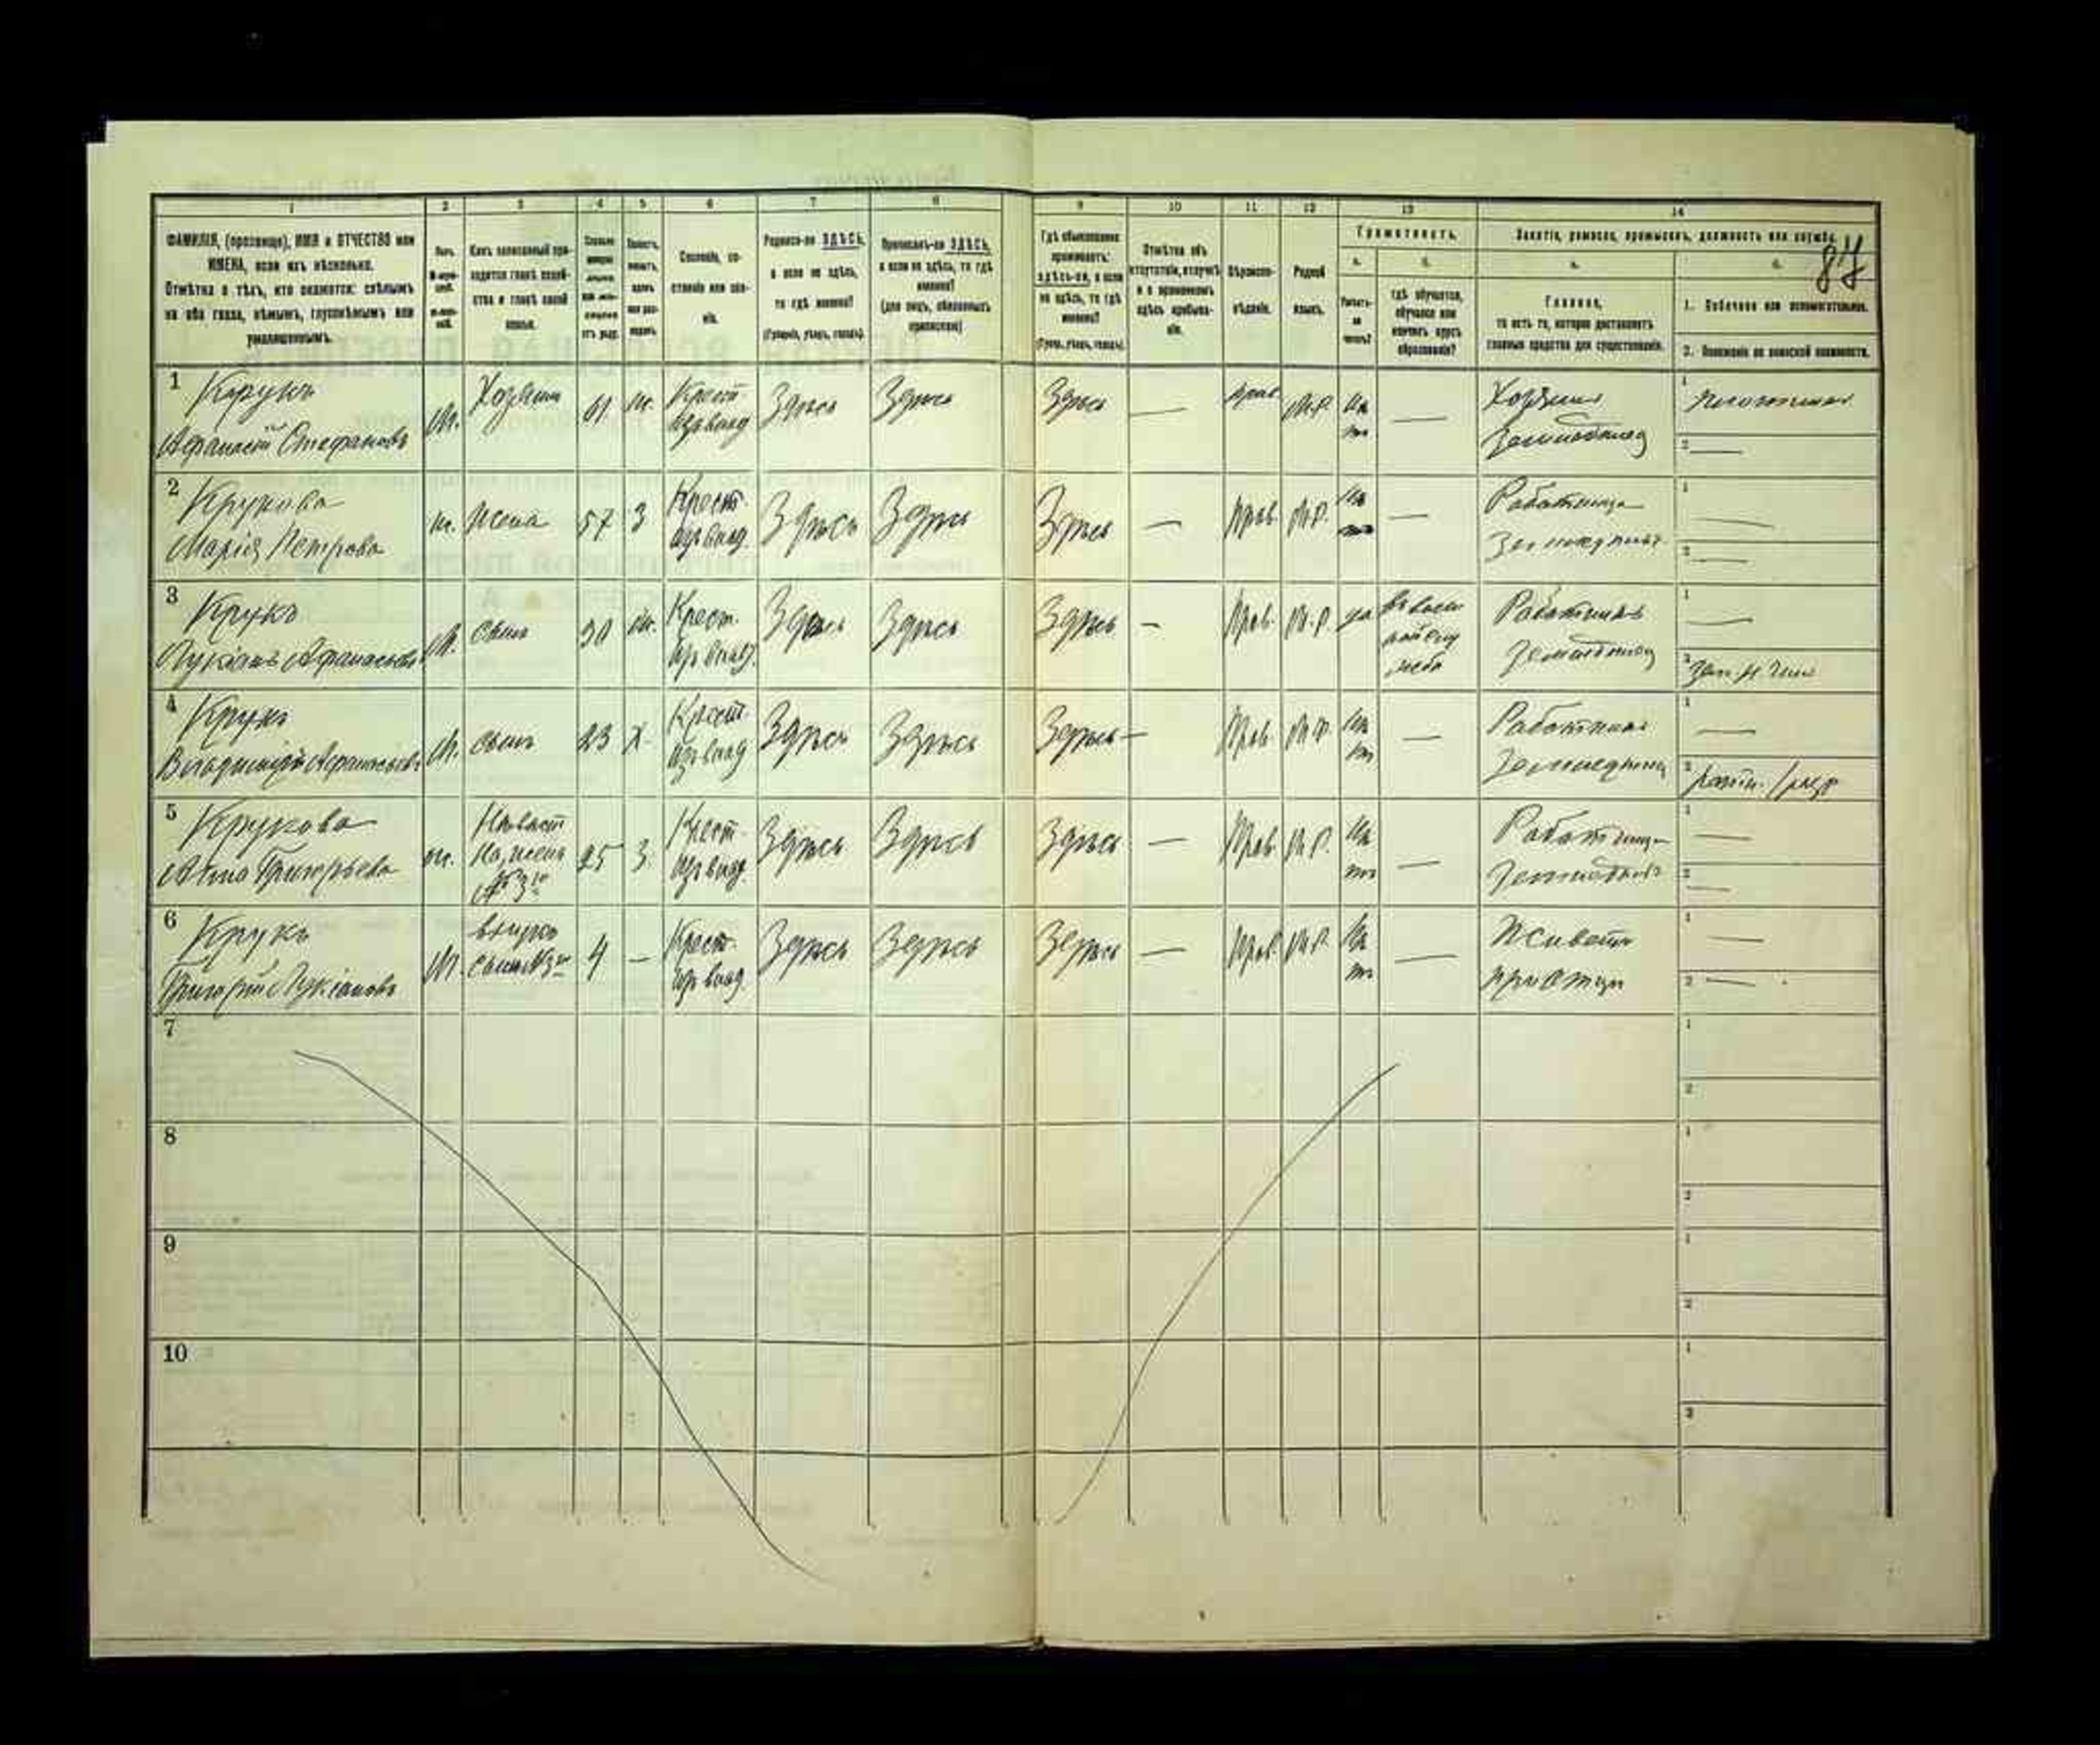 1 2 3 4 5 6 7 8 9 10 11 12 13 14
ФАМИЛІЯ, (прозвище), ИМЯ и ОТЧЕСТВО или
ИМЕНА, если ихъ нѣсколько.
Отмѣтка о тѣхъ, кто окажется: слѣпымъ
на оба глаза, нѣмымъ, глухонѣмымъ или
умалишеннымъ.
Полъ.
Какъ записанный при-
ходится главѣ хозяй-
ства и главѣ своей
семьи.
Сословіе, со-
стояніе или зва-
ніе.
Родился-ли ЗДѢСЬ,
а если не здѣсь,
то гдѣ именно?
(Губернія, уѣздъ, городъ).
Приписанъ-ли ЗДѢСЬ,
а если не здѣсь, то гдѣ
именно?
(для лицъ, обязанныхъ
припискою)
Гдѣ обыкновенно
проживаетъ:
здѣсь-ли, а если
не здѣсь, то гдѣ
именно?
(Губер., уѣздъ, городъ).
Отмѣтка объ
отсутствіи, отлучкѣ
и о временномъ
здѣсь пребыва-
ніи.
Вѣроиспо-
вѣданіе.
Родной
языкъ.
Грамотность.
а. б.
Умѣетъ-
ли
читать?
гдѣ обучается,
обучался или
кончилъ курсъ
образованія?
Занятіе, ремесло, промыселъ, должность или служба.
87
а. б.
Главное,
то есть то, которое доставляетъ
главныя средства для существованія.
1. Побочное или вспомогательное.
2. Положеніе по воинской повинности.
1 Крукъ
Афанасій Стефановъ
м.
Хозяинъ
61
ж.
Крест.
изъ влад.
Здѣсь Здѣсь Здѣсь —
прав.
М.Р.
нѣ
тъ
—
Хозяинъ
Земледѣлец
1
2 —
2 Крукова
Марія Петрова
ж. жена 57 З
Крест.
изъ влад.
Здѣсь Здѣсь Здѣсь — Прав. М.Р.
нѣ
тъ
—
Работница
1 —
2 —
3 Крукъ
Лукіанъ Афанасьевъ
м. сынъ 30 ж.
Крест.
изъ влад.
Здѣсь Здѣсь Здѣсь — Прав. М.Р. да
Работникъ
Земледѣлец
1 —
2
4 Крукъ
Владимірій Афанасьевъ
м. сынъ 23 Х.
Крест.
изъ влад
Здѣсь Здѣсь Здѣсь — Прав. М.Р.
нѣ
тъ
—
Работникъ
Земледѣлец
1 —
2
5 Крукова
Анна Григорьева
ж.
Невѣст
ка, жена
№ 3го
25 З.
Крест.
изъ влад.
Здѣсь Здѣсь Здѣсь — Прав. М.Р.
нѣ
тъ
—
Работница
1 —
2 —
6 Крукъ
Григорій Лукіановъ
м.
внукъ
сынъ №3го
4 —
Крест.
изъ влад.
Здѣсь Здѣсь Здѣсь — Прав. М.Р.
нѣ
тъ
—
Живетъ
при отцѣ
1 —
2 —
7 1
2
8 1
2
9 1
2
10 1
2